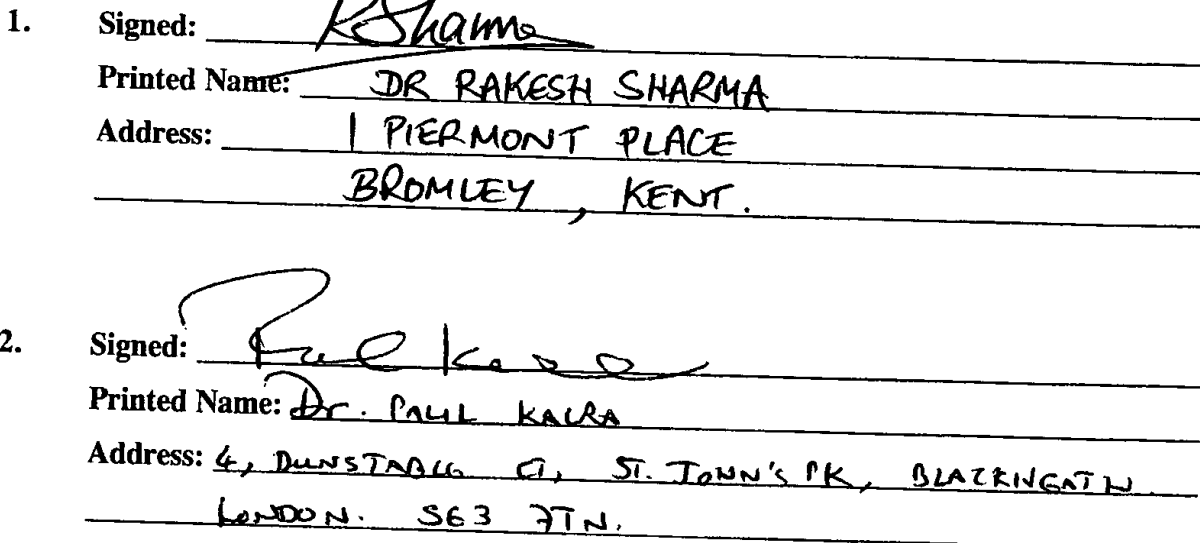 1. Signed: RSharma
Printed Name: DR RAKESH SHARMA
Address: 1 PIERMONT PLACE
BROMLEY, KENT.
2. Signed: Paul Kalra
Printed Name: Dr. PAUL KALRA
Address: 4, DUNSTABLE CT, ST. JOHN'S PK, BLACKHEATH
LONDON. SE3 7TN.